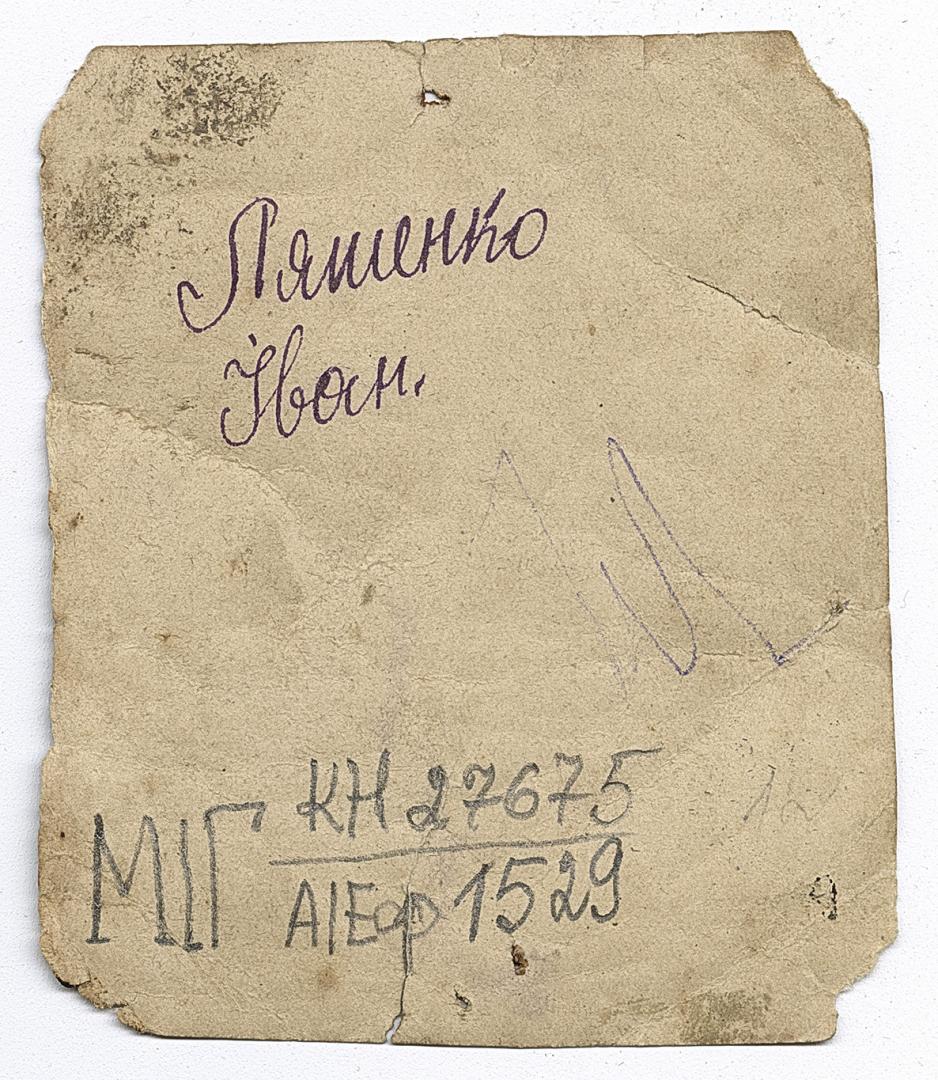 Ляшенко
Іван.
МІГ КН 27675
АІЕф 1529
9